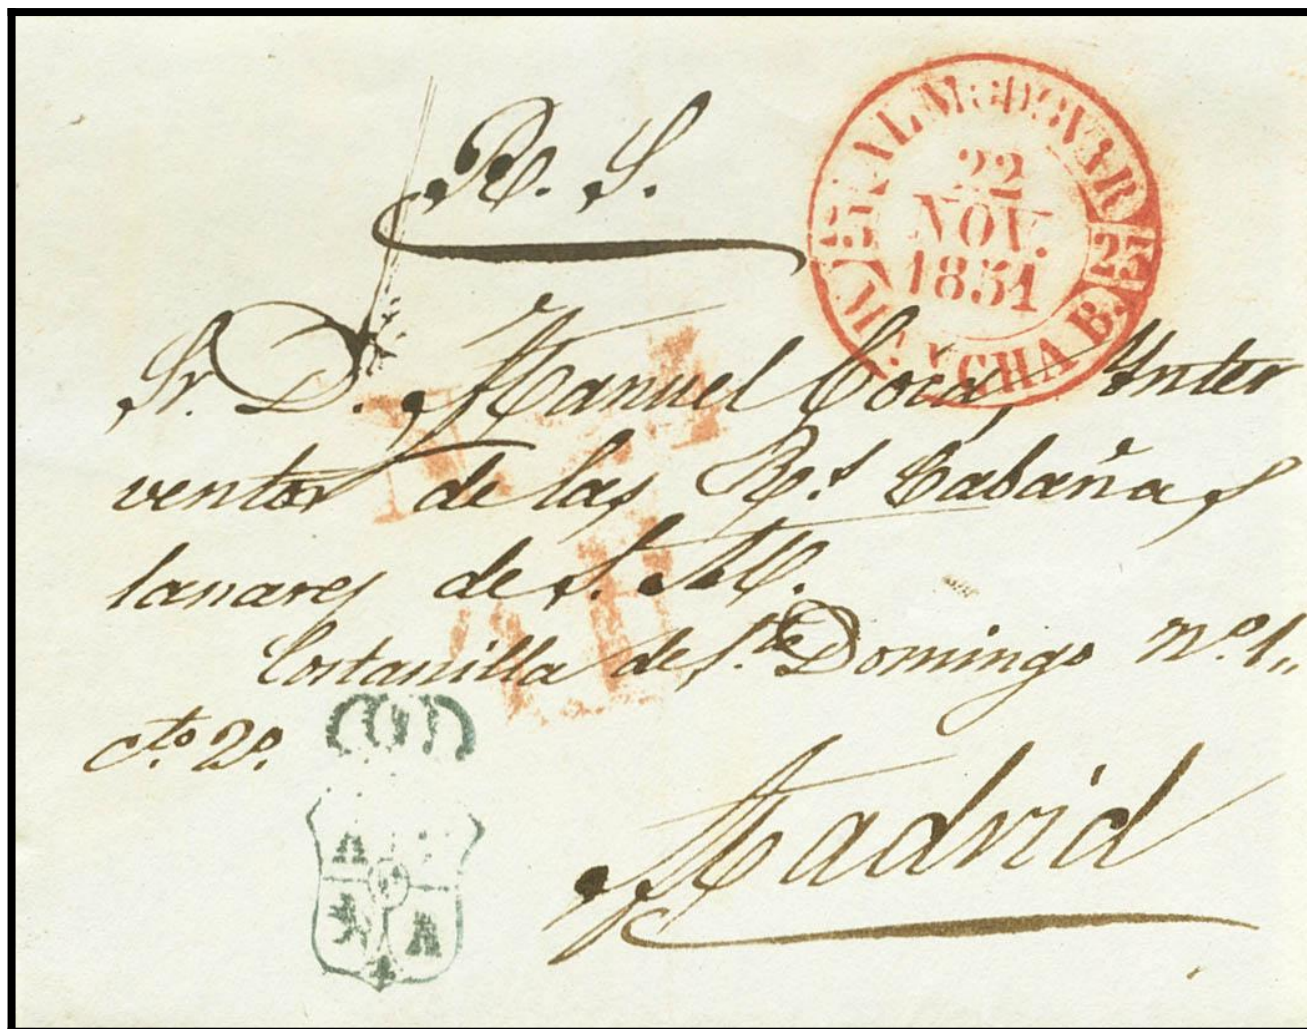 R. S.
22
NOV.
1851
25
MANCHA B.
Sr. D. Manuel Coca, Inter
ventor de las Rs. Cabañas
lanares de S. M.
Costanilla de Sto. Domingo Nº. 1,,
cto. 2º.
Madrid